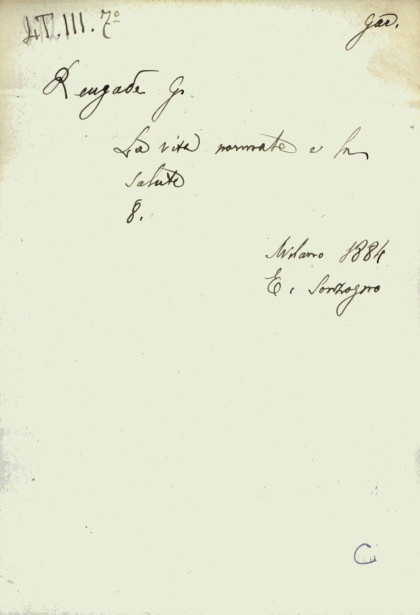 LT. III. 7º
gad.
Rengade G.
La vita normale e la
salute
8.
Milano 1884
E. Sonzogno
C